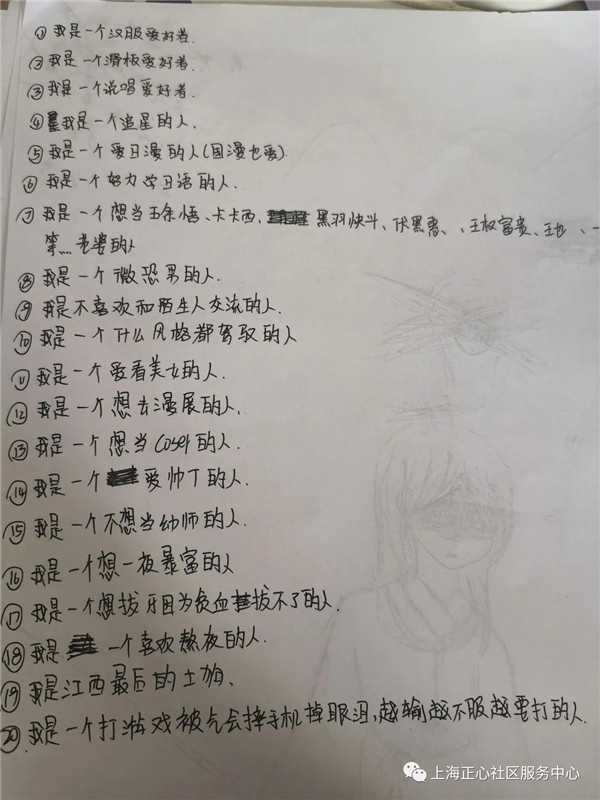 ①我是一个汉服爱好者.
②我是一个滑板爱好者.
③我是一个说唱爱好者.
④我是一个追星的人.
⑤我是一个爱日漫的人(国漫也爱).
⑥我是一个努力学日语的人.
⑦我是一个想当五条悟、卡卡西、黑羽快斗、伏黑惠、、王权富贵、王也、一
等....老婆的人
⑧我是一个微恐男的人.
⑨我是不喜欢和陌生人交流的人.
⑩我是一个什么风格都驾驭的人
⑪我是一个爱看美女的人.
⑫我是一个想去漫展的人.
⑬我是一个想当coser的人.
⑭我是一个爱帅T的人.
⑮我是一个不想当幼师的人.
⑯我是一个想一夜暴富的人
⑰我是一个想拔牙因为贫血拔不了的人.
⑱我是一个喜欢熬夜的人.
⑲我是江西最后的土狗、
⑳我是一个打游戏被气会摔手机掉眼泪,越输越不服越要打的人.
上海正心社区服务中心